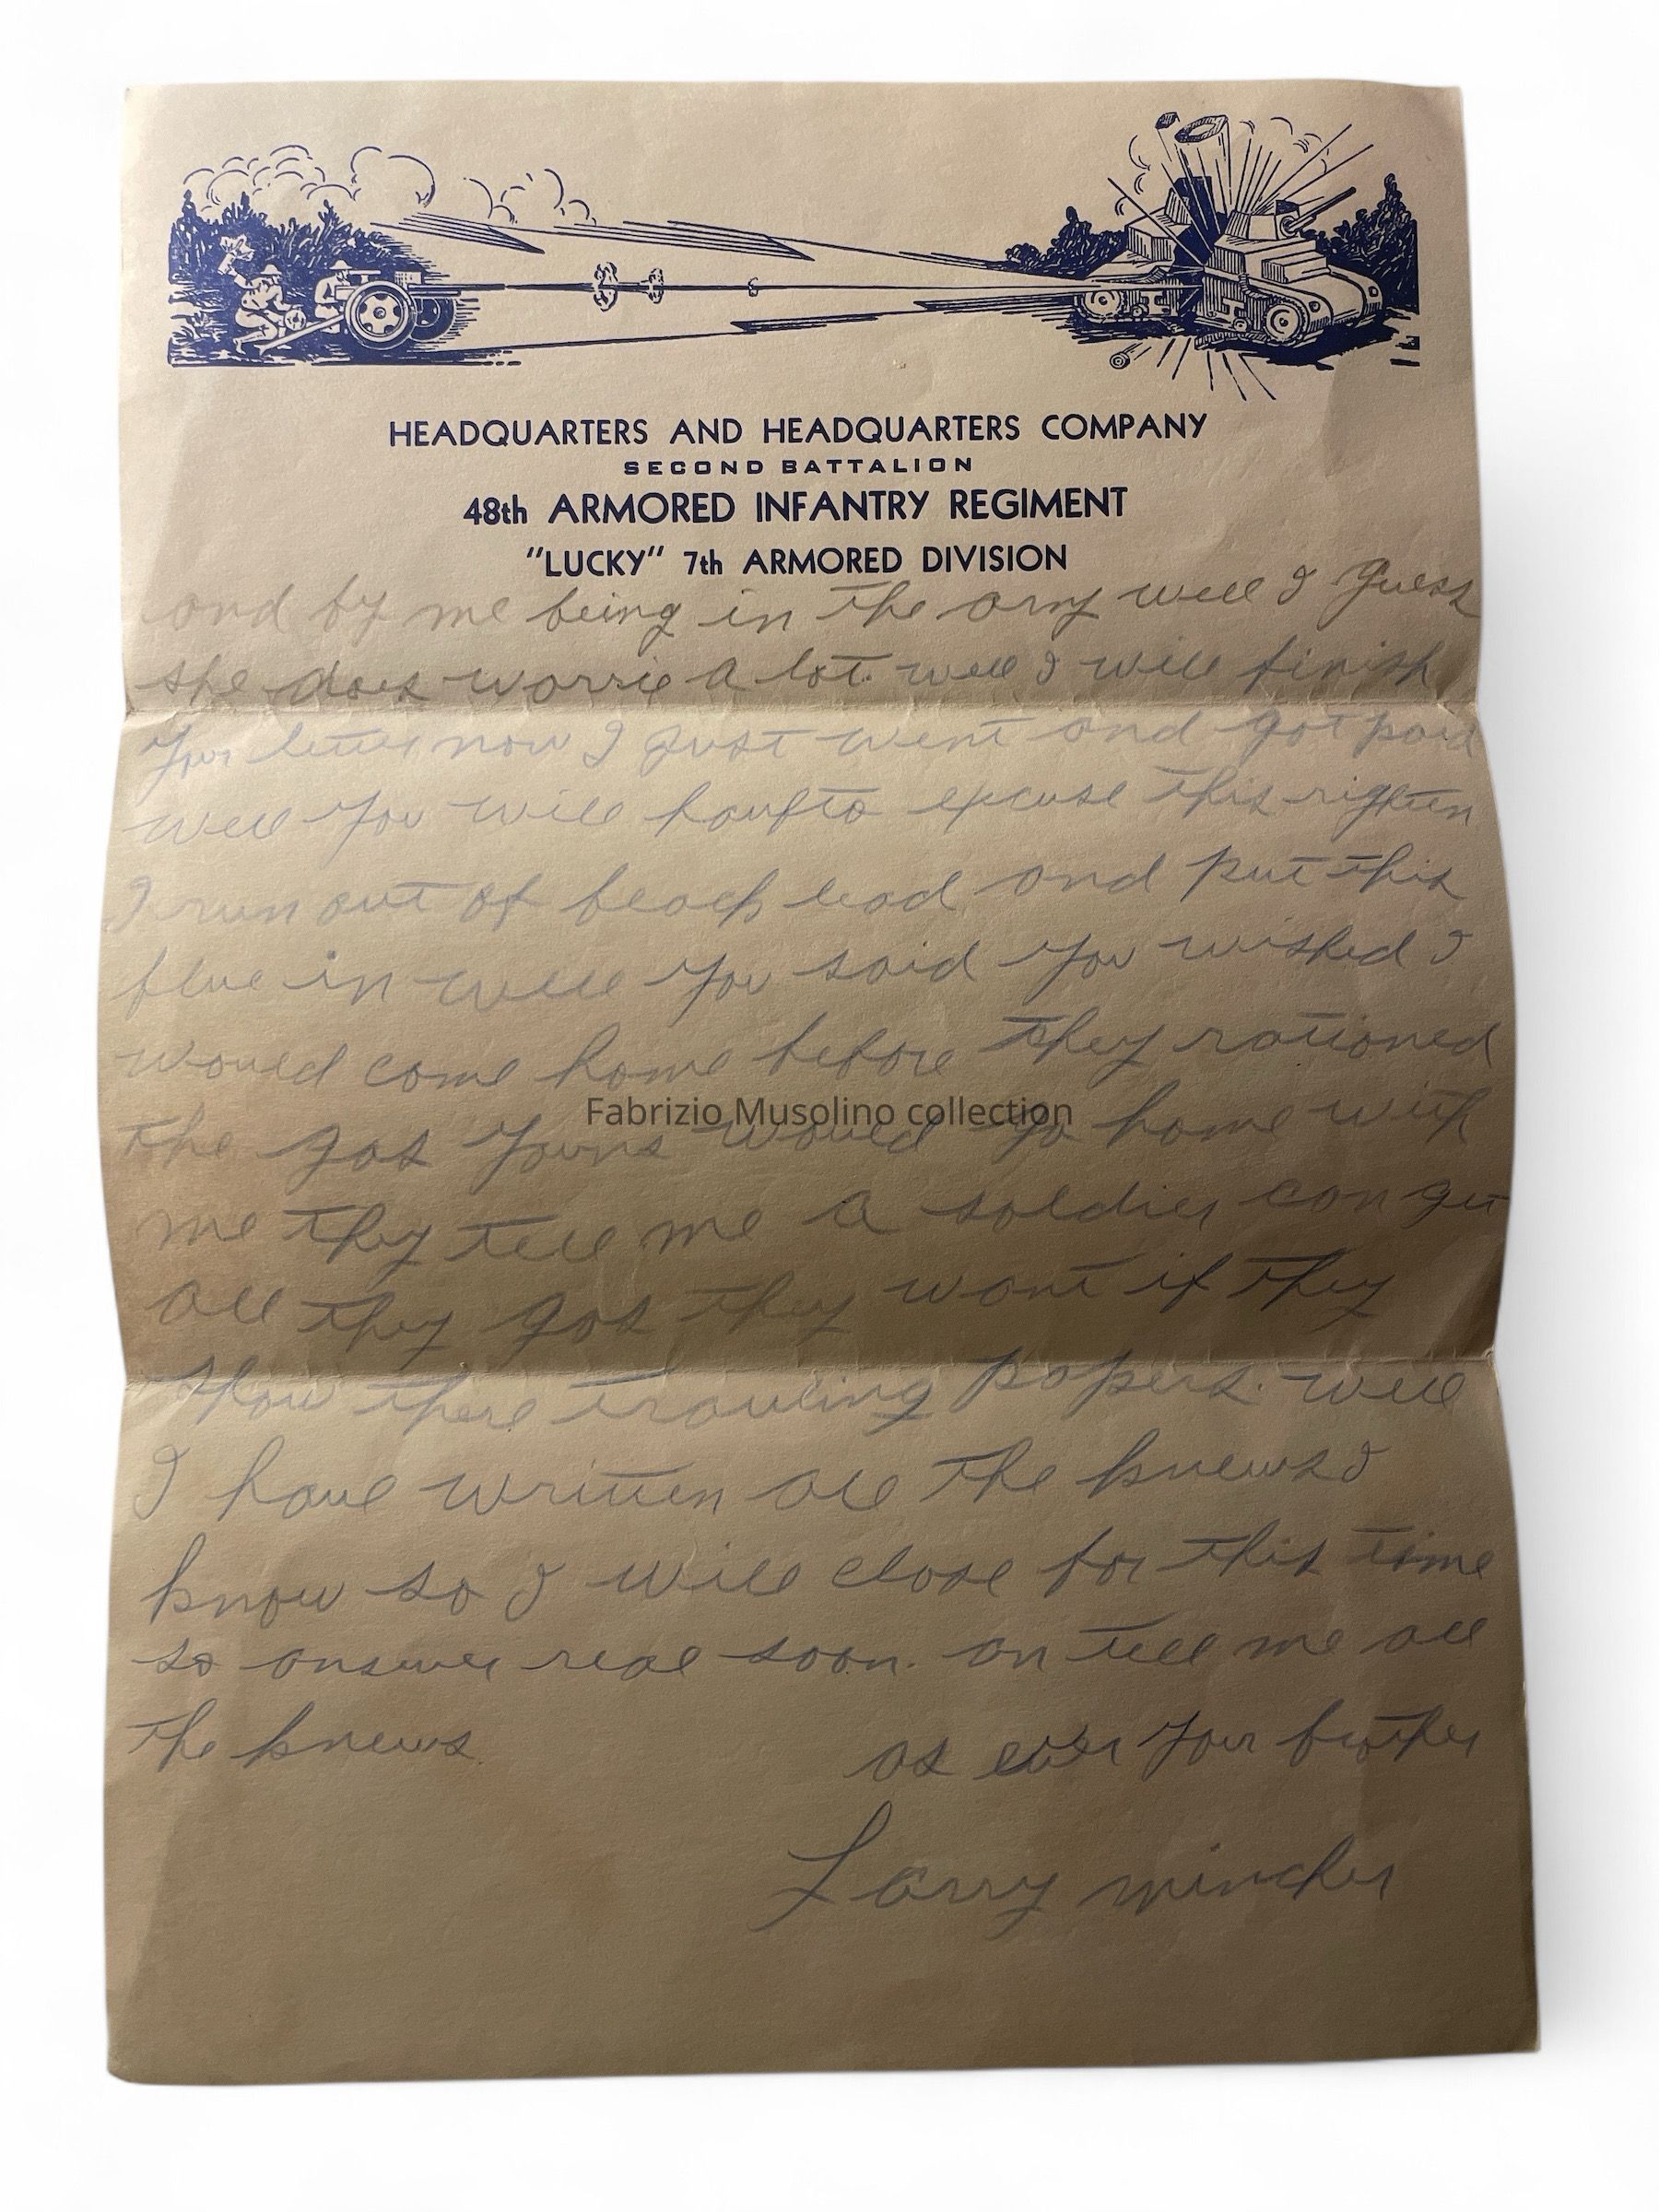 HEADQUARTERS AND HEADQUARTERS COMPANY
SECOND BATTALION
48th ARMORED INFANTRY REGIMENT
"LUCKY" 7th ARMORED DIVISION
and by me being in the army well I guess
she does worrie a lot. well I will finish
your letter now I just went and got paid
well you will haufto excuse this righten
I run out of beach lead and put this
blue in well you said you wished I
would come home before they rationed
the gas yours would go home with
me they tell me a soldier can get
all they gas they want if they
show there trauling papers. well
I have written all the knews I
know so I will close for this time
so answer real soon. an tell me all
the knews.
as ever your brother
Larry mincher
Fabrizio Musolino collection